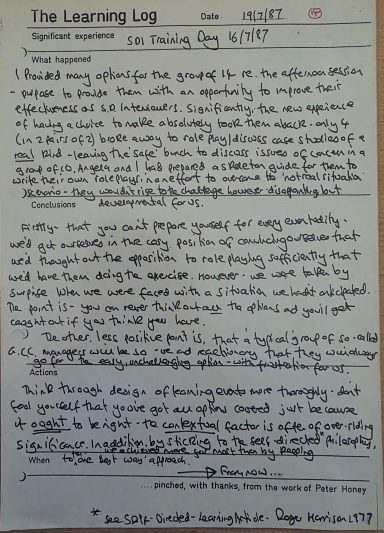 The Learning Log
Date 19/7/87
14
Significant experience SDI Training Day 16/7/87
What happened
I Provided many options for the group of 14 re. the afternoon session
- purpose to provide them with an opportunity to improve their
effectiveness as S.D. Interviewers. Significantly, the new experience
of having a choice to make absolutely took them aback - only 4
(in 2 pairs of 2) broke away to role play/discuss case studies of a
real kind - leaving the 'safe' bunch to discuss issues of concern in a
group of 10. Angela and I had prepared a skeleton guide for them to
write their own roleplays in an effort to overcome the 'not real situation'
scenario - they wouldn't rise to the challenge however disappointing but
developmental for us.
Conclusions
Firstly - that you can't prepare yourself for every eventuality.
we'd got ourselves in the cosy position of convincing ourselves that
we'd thought out the opposition to role playing sufficiently that
we'd have them doing the exercise. However - we were taken by
surprise when we were faced with a situation we hadn't anticipated.
The point is - you can never think out all the options and you'll get
caught out if you think you have.
The other, less positive point is, that a typical group of so-called
G.CC. managers will be so -ve and reactionary that they will always
go for the easy, unchallenging option - with frustration for us.
Actions
Think through design of learning events more thoroughly - don't
fool yourself that you've got all options covered just because
it ought to be right - the contextual factor is often of over-riding
significance. In addition, by sticking to the self directed philosophy,
we achieved more than by
to 'one best way' approach.
When
From now...
....pinched, with thanks, from the work of Peter Honey
* See Self-Directed-Learning Article - Roger Harrison 1977